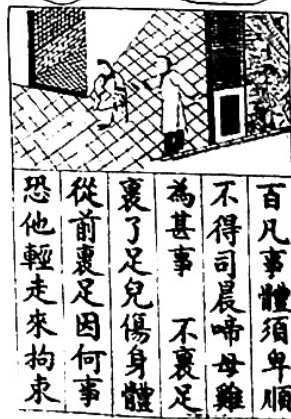 百凡事體須卑順
不得司晨啼母雞
為甚事　不裹足
裹了足兒傷身體
從前裹足因何事
恐他輕走來拘束